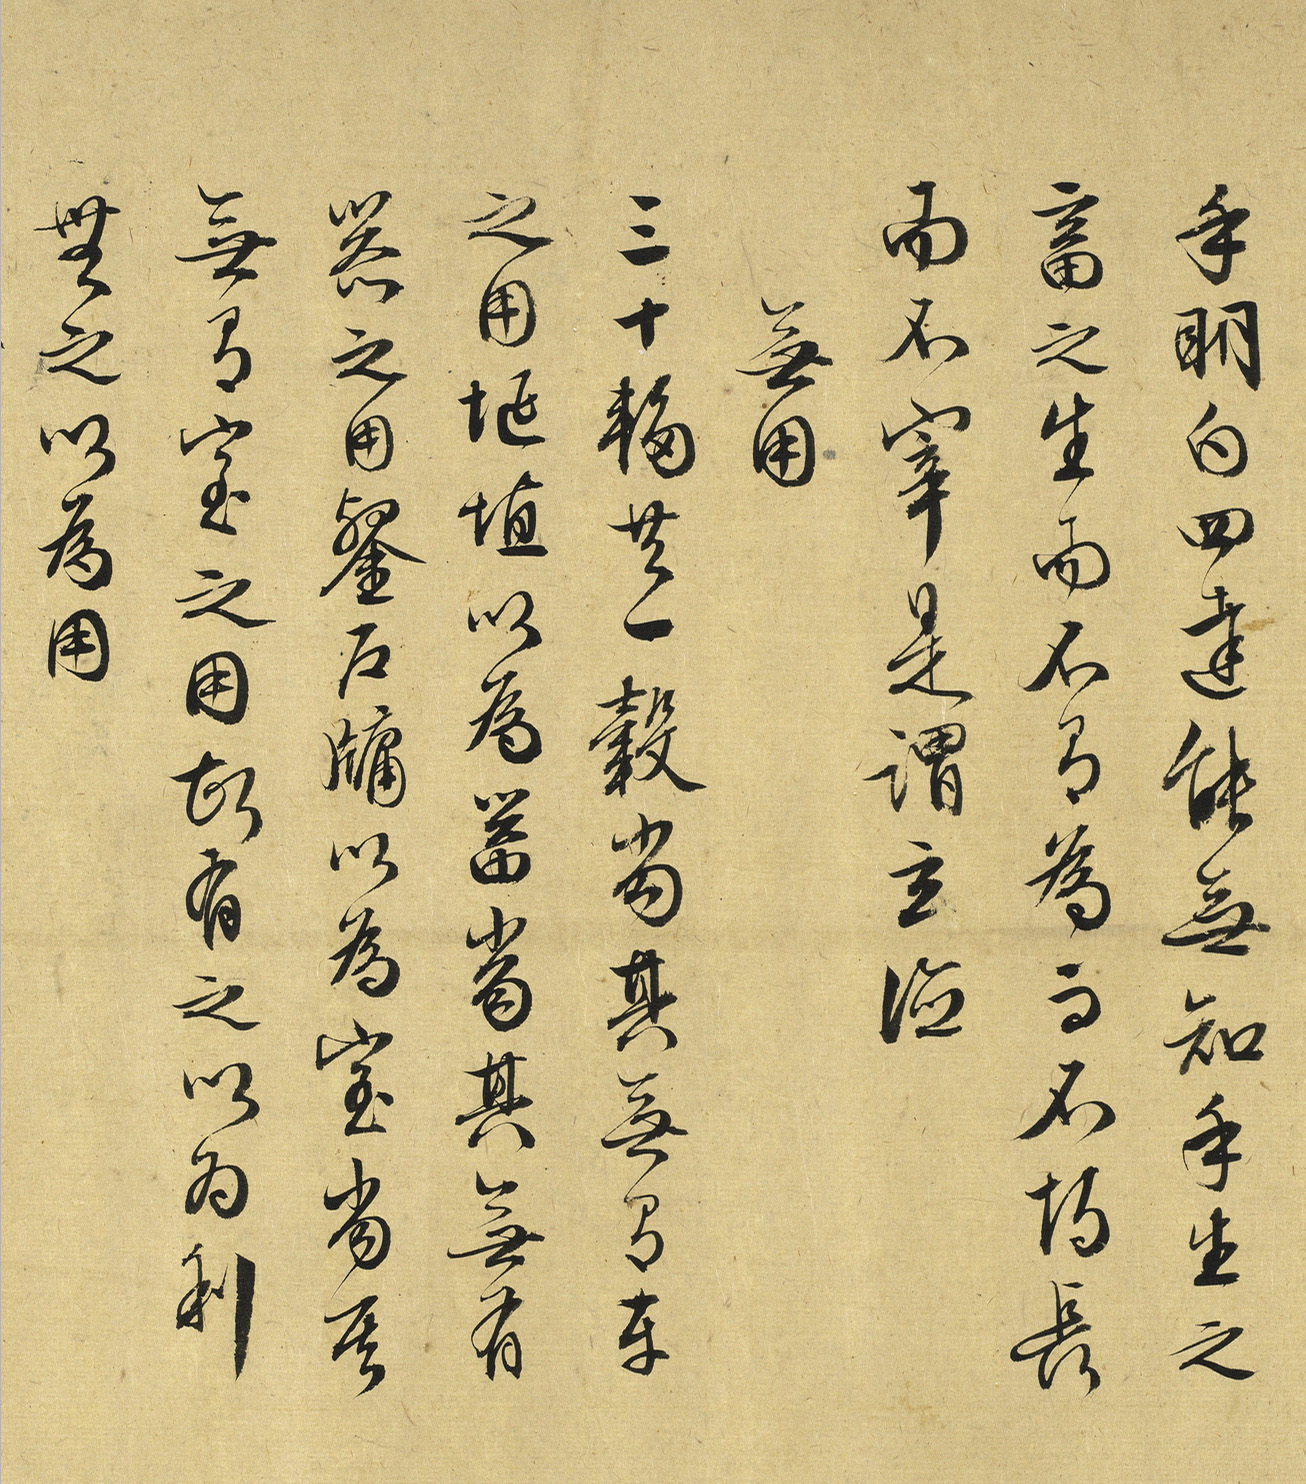 乎明白四達能無知乎生之
畜之生而不有為而不恃長
而不宰是謂玄德
無用
三十輻共一轂當其無有車
之用埏埴以為器當其無有
器之用鑿戶牖以為室當其
無有室之用故有之以為利
無之以為用